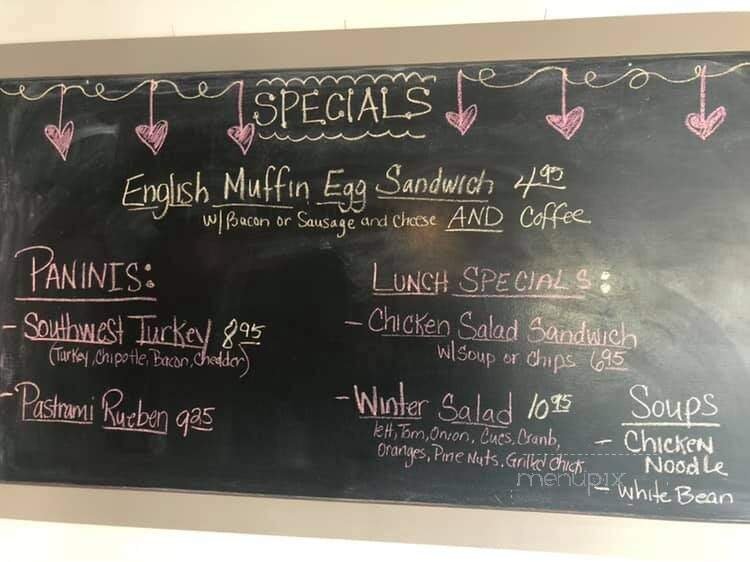 SPECIALS
English Muffin Egg Sandwich 4.95
w/Bacon or Sausage and Cheese AND Coffee
PANINIS:
- Southwest Turkey 8.95
(Turkey, Chipotle, Bacon, Chedder)
- Pastrami Rueben 9.25
LUNCH SPECIALS:
- Chicken Salad Sandwich
w/Soup or Chips 6.95
- Winter Salad 10.95
lett, Tom, Onion, Cucs, Cranb,
Oranges, Pine Nuts, Grilled Chick
SOUPS
- CHICKEN
NOODLE
- White Bean
menupix